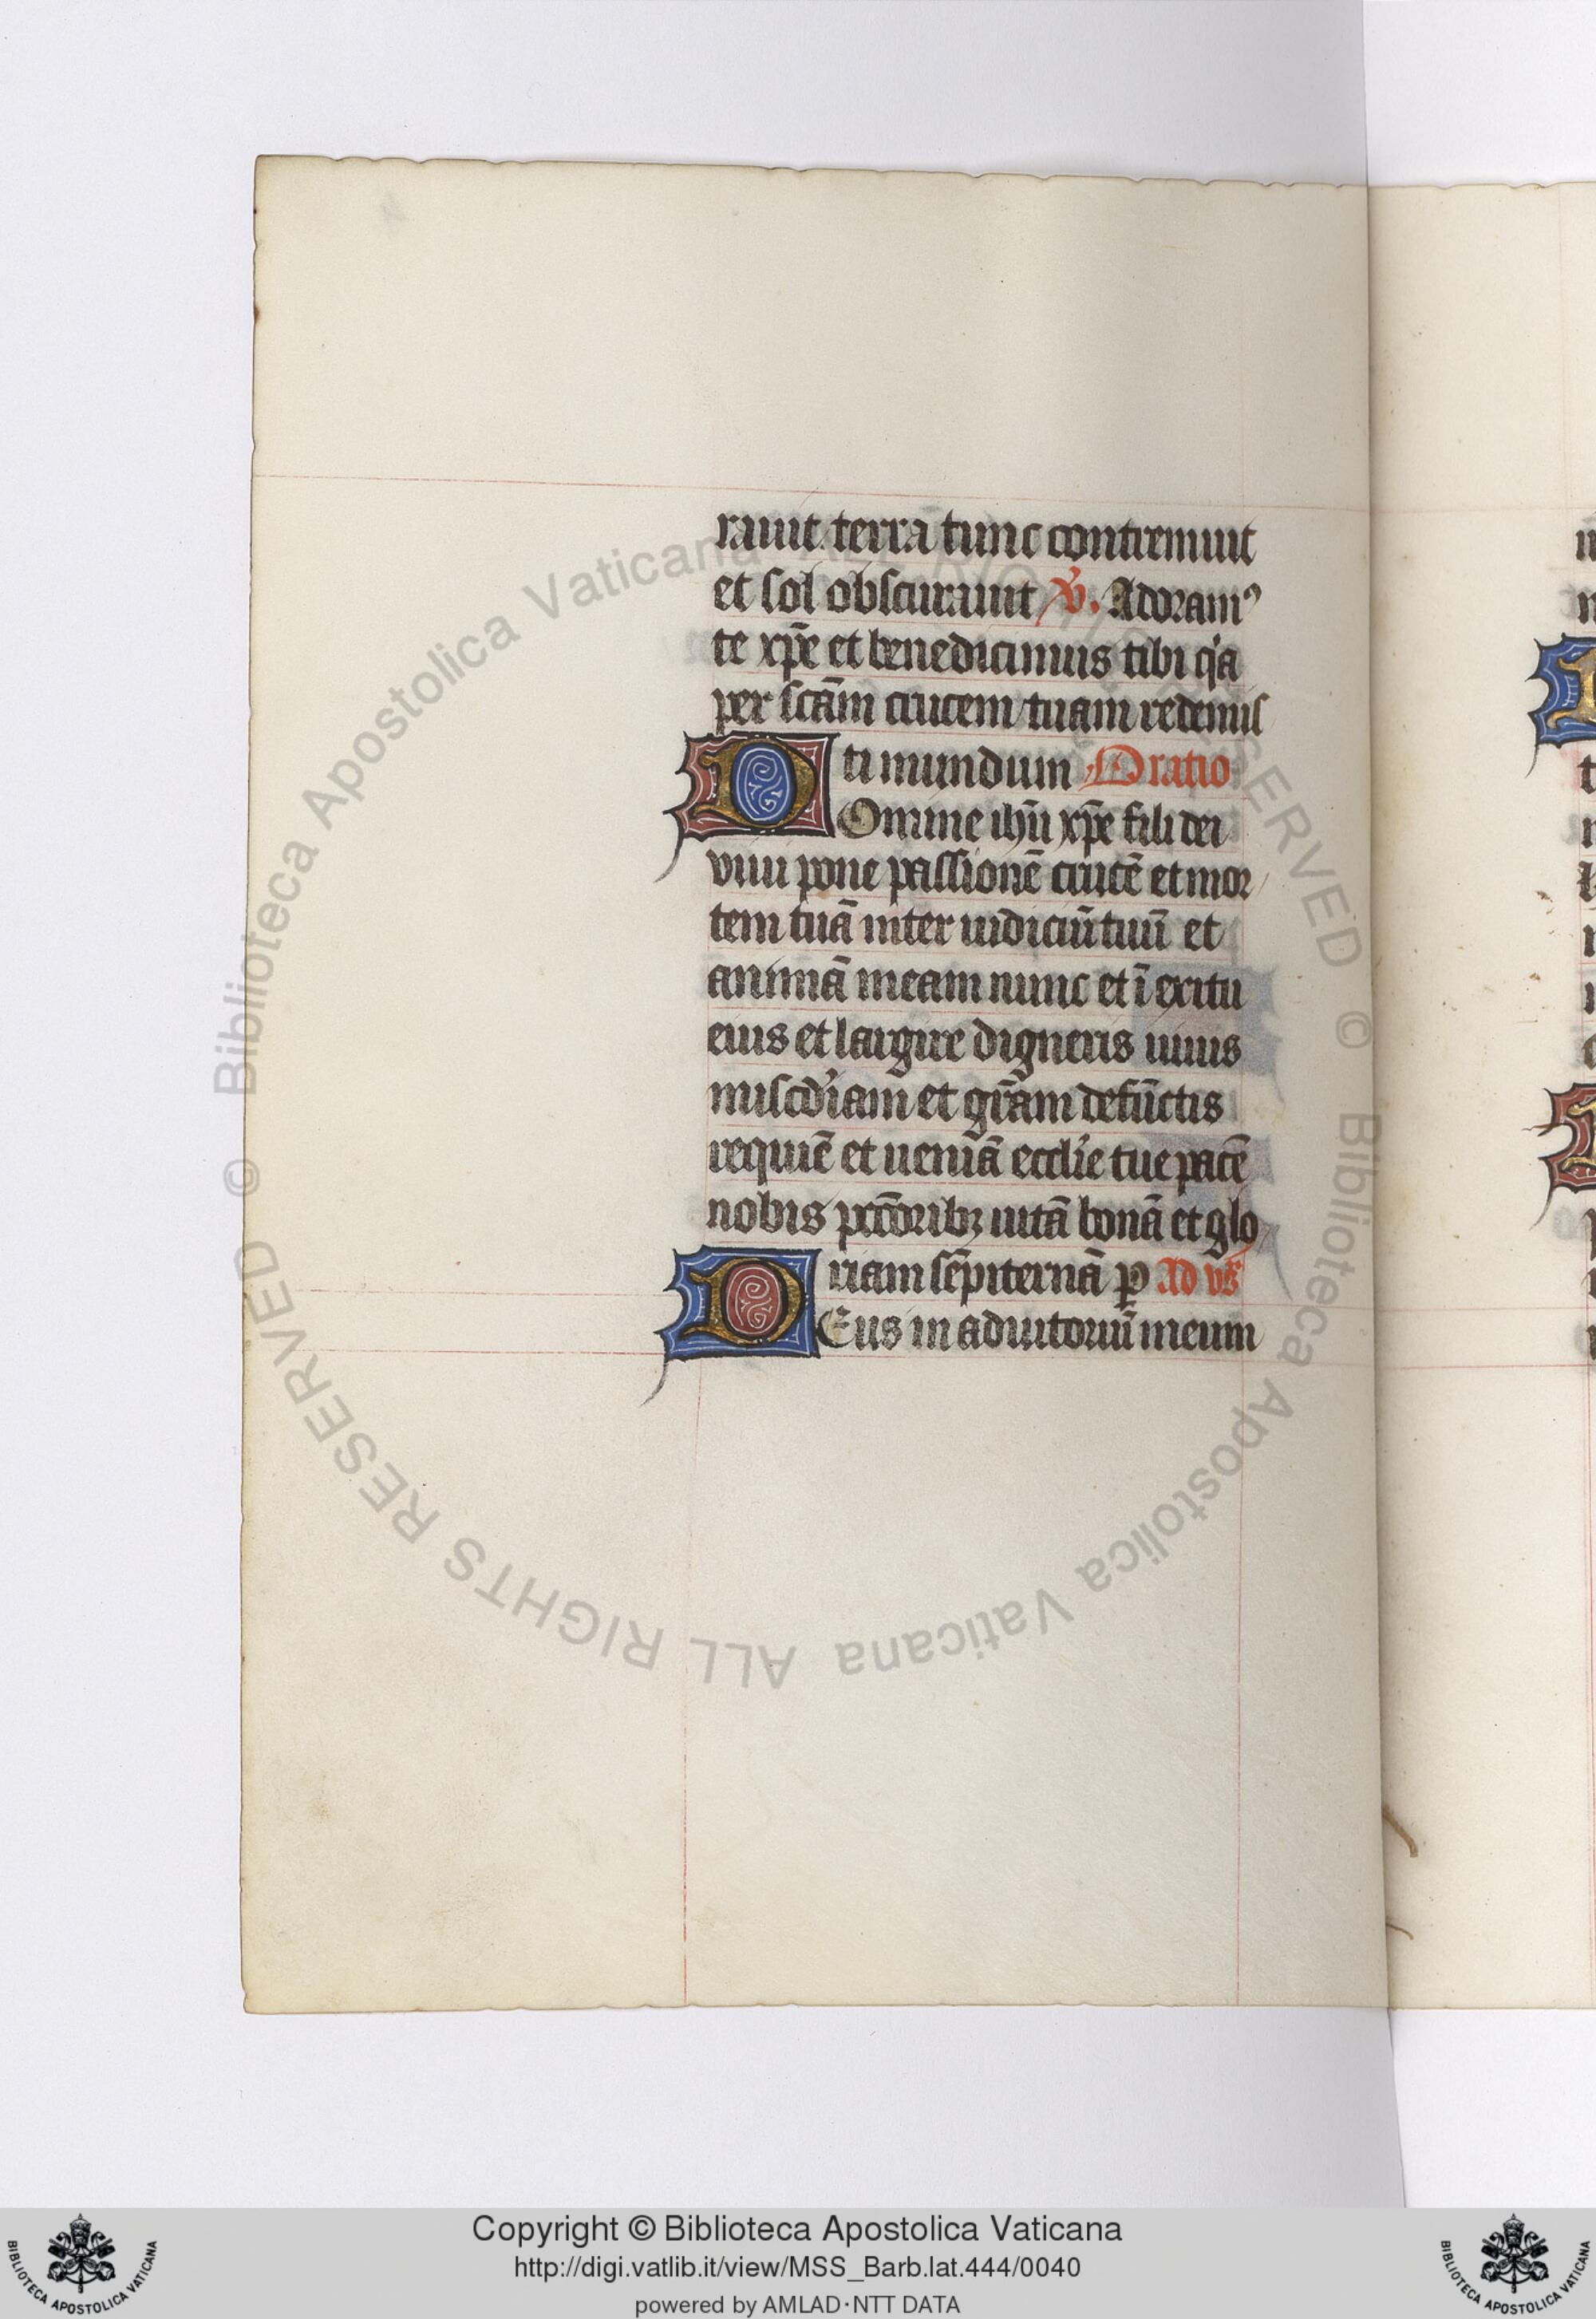 rauit. terra tunc contremuit
et sol obscurauit v̓. Adoram⁹
te xp̄e et benedicimus tibi q'a
per scām crucem tuam redemis
ti mundum Oratio
DOmine ihū xp̄e fili dei
viui pone passionē crucē et mor
tem tuā inter iudiciū tuū et
animā meam nunc et ī exitu
eius et largire digneris uiuis
misc̄diam et gr̄am defūctis
requiē et ueniā eccl̓ie tue pacē
nobis pccōribꝫ uitā bonā et glo
riam sēpiternā ꝑ Ad vs̄
DEus in adiutoriū meum
© Biblioteca Apostolica Vaticana ALL RIGHTS RESERVED © Biblioteca Apostolica Vaticana ALL RIGHTS RESERVED
BIBLIOTECA APOSTOLICA VATICANA
Copyright © Biblioteca Apostolica Vaticana
http://digi.vatlib.it/view/MSS_Barb.lat.444/0040
powered by AMLAD·NTT DATA
BIBLIOTECA APOSTOLICA VATICANA